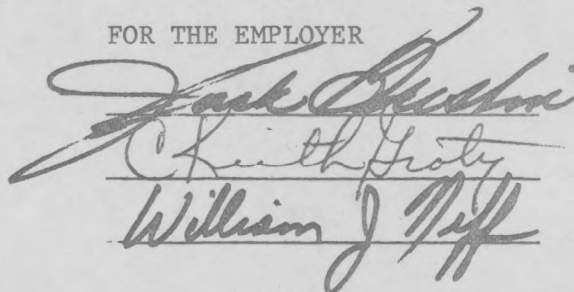 FOR THE EMPLOYER
Jack
C Keith Groty
William J Neff